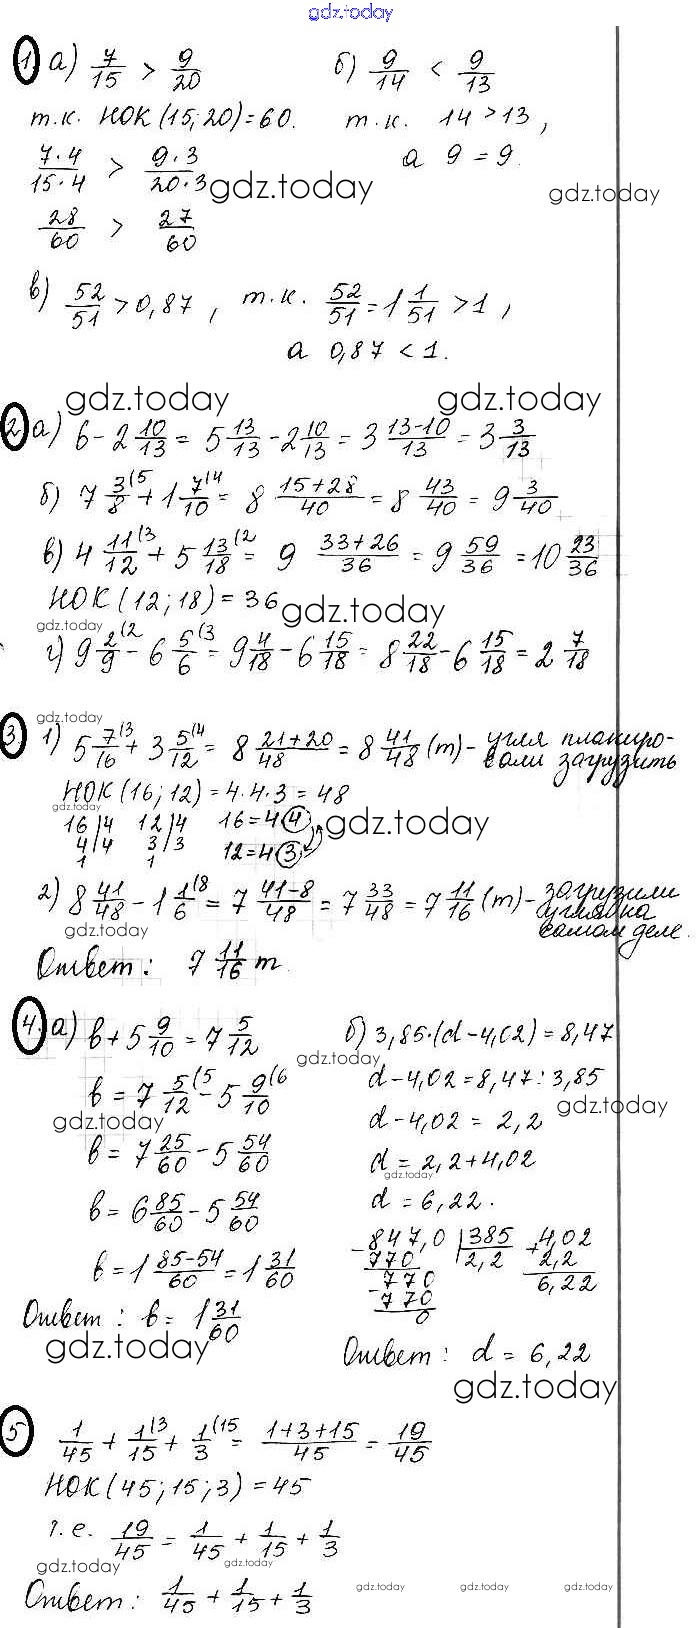 gdz.today
1. а) 7/15 > 9/20 б) 9/14 < 9/13
т.к. НОК (15; 20) = 60. т.к. 14 > 13,
7·4/15·4 > 9·3/20·3 а 9 = 9.
gdz.today gdz.today
28/60 > 27/60
в) 52/51 > 0,87, т.к. 52/51 = 1 1/51 > 1,
а 0,87 < 1.
gdz.today gdz.today
2. а) 6 - 2 10/13 = 5 13/13 - 2 10/13 = 3 13-10/13 = 3 3/13
б) 7 3/8 (5 + 1 7/10 (4 = 8 15+28/40 = 8 43/40 = 9 3/40
в) 4 11/12 (3 + 5 13/18 (2 = 9 33+26/36 = 9 59/36 = 10 23/36
НОК (12; 18) = 36
gdz.today gdz.today
г) 9 2/9 (2 - 6 5/6 (3 = 9 4/18 - 6 15/18 = 8 22/18 - 6 15/18 = 2 7/18
gdz.today
3 1) 5 7/16 (3 + 3 5/12 (4 = 8 21+20/48 = 8 41/48 (т) - угля планиро-
вали загрузить
НОК (16; 12) = 4·4·3 = 48
gdz.today
16|4 12|4 16=4·4 gdz.today
4|4 3|3 12=4·3
1 1
2) 8 41/48 - 1 1/6 (8 = 7 41-8/48 = 7 33/48 = 7 11/16 (т) - загрузили
угля на
самом деле.
gdz.today gdz.today
Ответ: 7 11/16 т.
4. а) в + 5 9/10 = 7 5/12 б) 3,85·(d-4,02) = 8,47
gdz.today
в = 7 5/12 (5 - 5 9/10 (6 d-4,02 = 8,47 : 3,85
gdz.today gdz.today
в = 7 25/60 - 5 54/60 d-4,02 = 2,2
d = 2,2+4,02
gdz.today
в = 6 85/60 - 5 54/60 d = 6,22.
в = 1 85-54/60 = 1 31/60 - 847,0 |385 + 4,02
770 2,2 2,2
- 770 6,22
770
0
Ответ: в = 1 31/60
gdz.today Ответ: d = 6,22
gdz.today
5 1/45 + 1/15 (3 + 1/3 (15 = 1+3+15/45 = 19/45
НОК (45; 15; 3) = 45
т.е. 19/45 = 1/45 + 1/15 + 1/3
gdz.today gdz.today
Ответ: 1/45 + 1/15 + 1/3
gdz.today gdz.today gdz.today